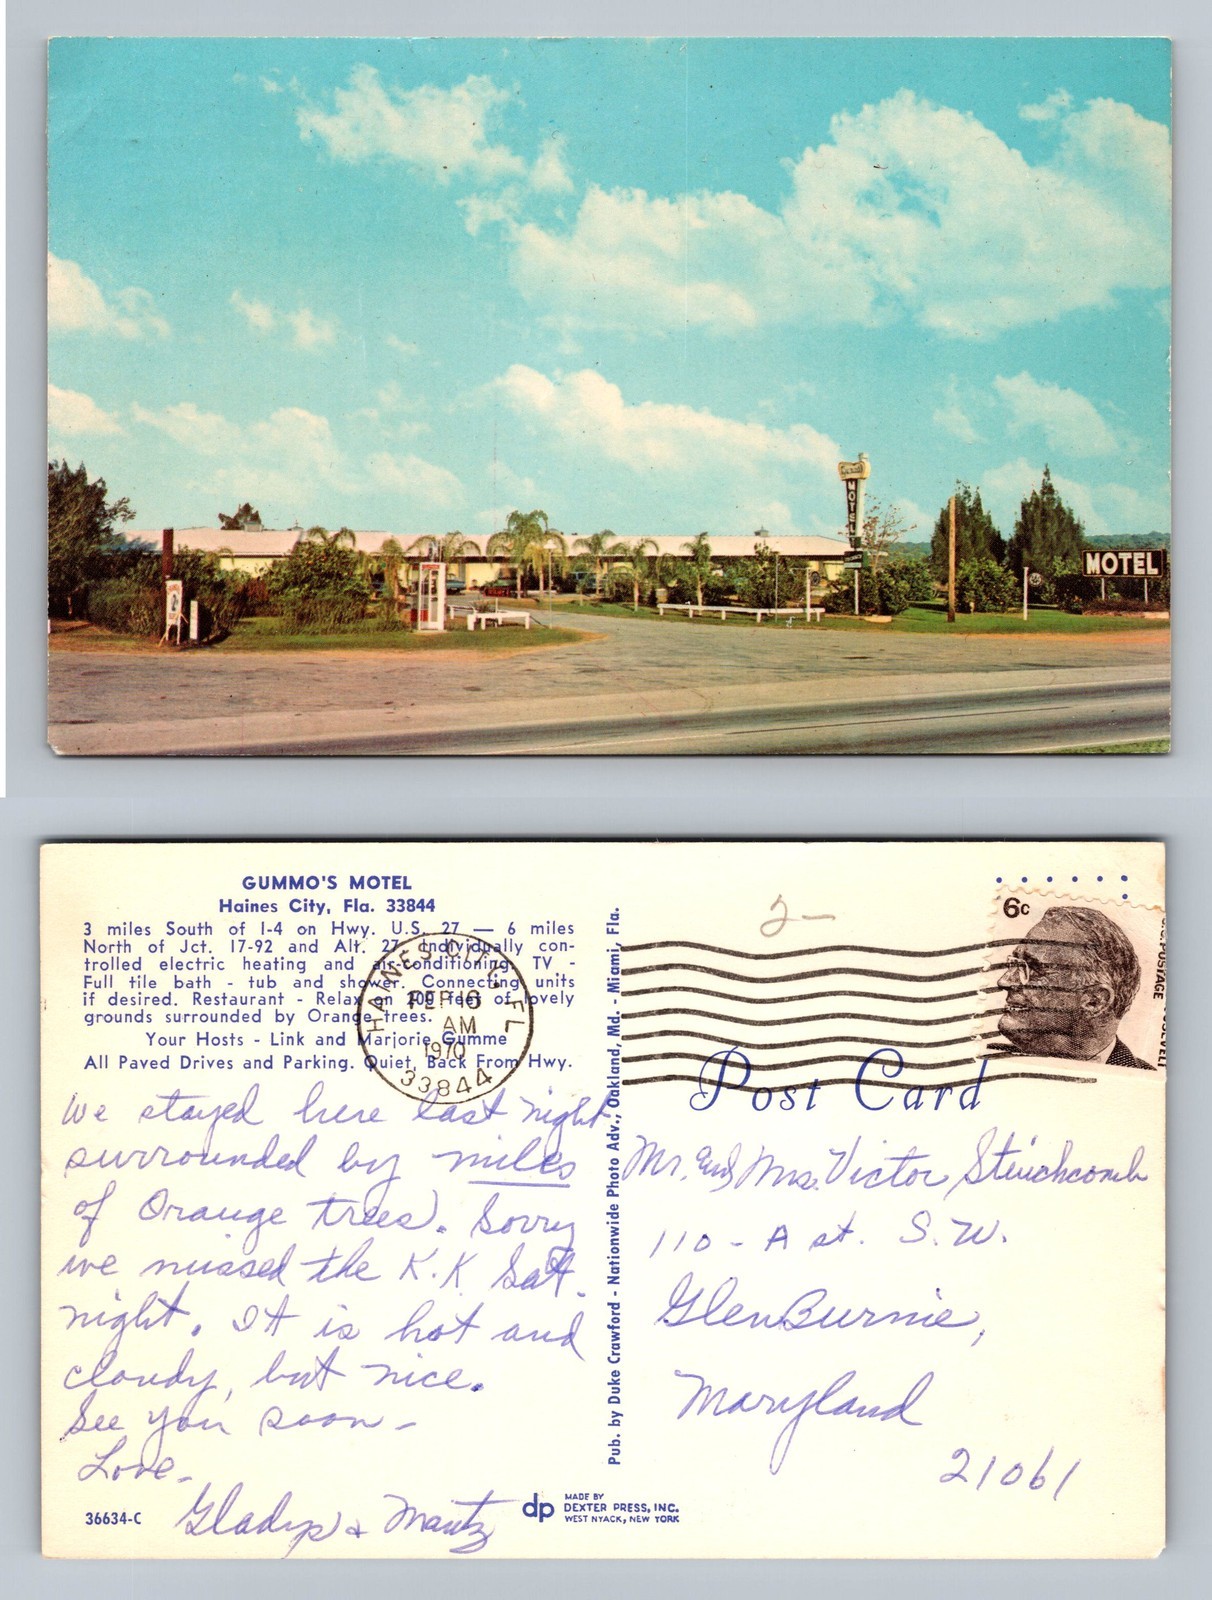 MOTEL
MOTEL
GUMMO'S MOTEL
Haines City, Fla. 33844
3 miles South of I-4 on Hwy. U.S. 27 — 6 miles
North of Jct. 17-92 and Alt. 27. Individually con-
trolled electric heating and air-conditioning. TV -
Full tile bath - tub and shower. Connecting units
if desired. Restaurant - Relax on 200 feet of lovely
grounds surrounded by Orange trees.
Your Hosts - Link and Marjorie Gumme
All Paved Drives and Parking. Quiet, Back From Hwy.
HAINES CITY, FL
AM
1970
33844
We stayed here last night
surrounded by miles
of Orange trees. Sorry
we missed the K.K. Sat.
night. It is hot and
cloudy, but nice.
See you soon -
Love -
Gladys & Mantz
36634-C
dp
MADE BY
DEXTER PRESS, INC.
WEST NYACK, NEW YORK
Pub. by Duke Crawford - Nationwide Photo Adv., Oakland, Md. - Miami, Fla.
2-
6c
U.S. POSTAGE
Post Card
Mr. and Mrs. Victor Stinchcomb
110 - A st. S.W.
Glen Burnie,
Maryland
21061